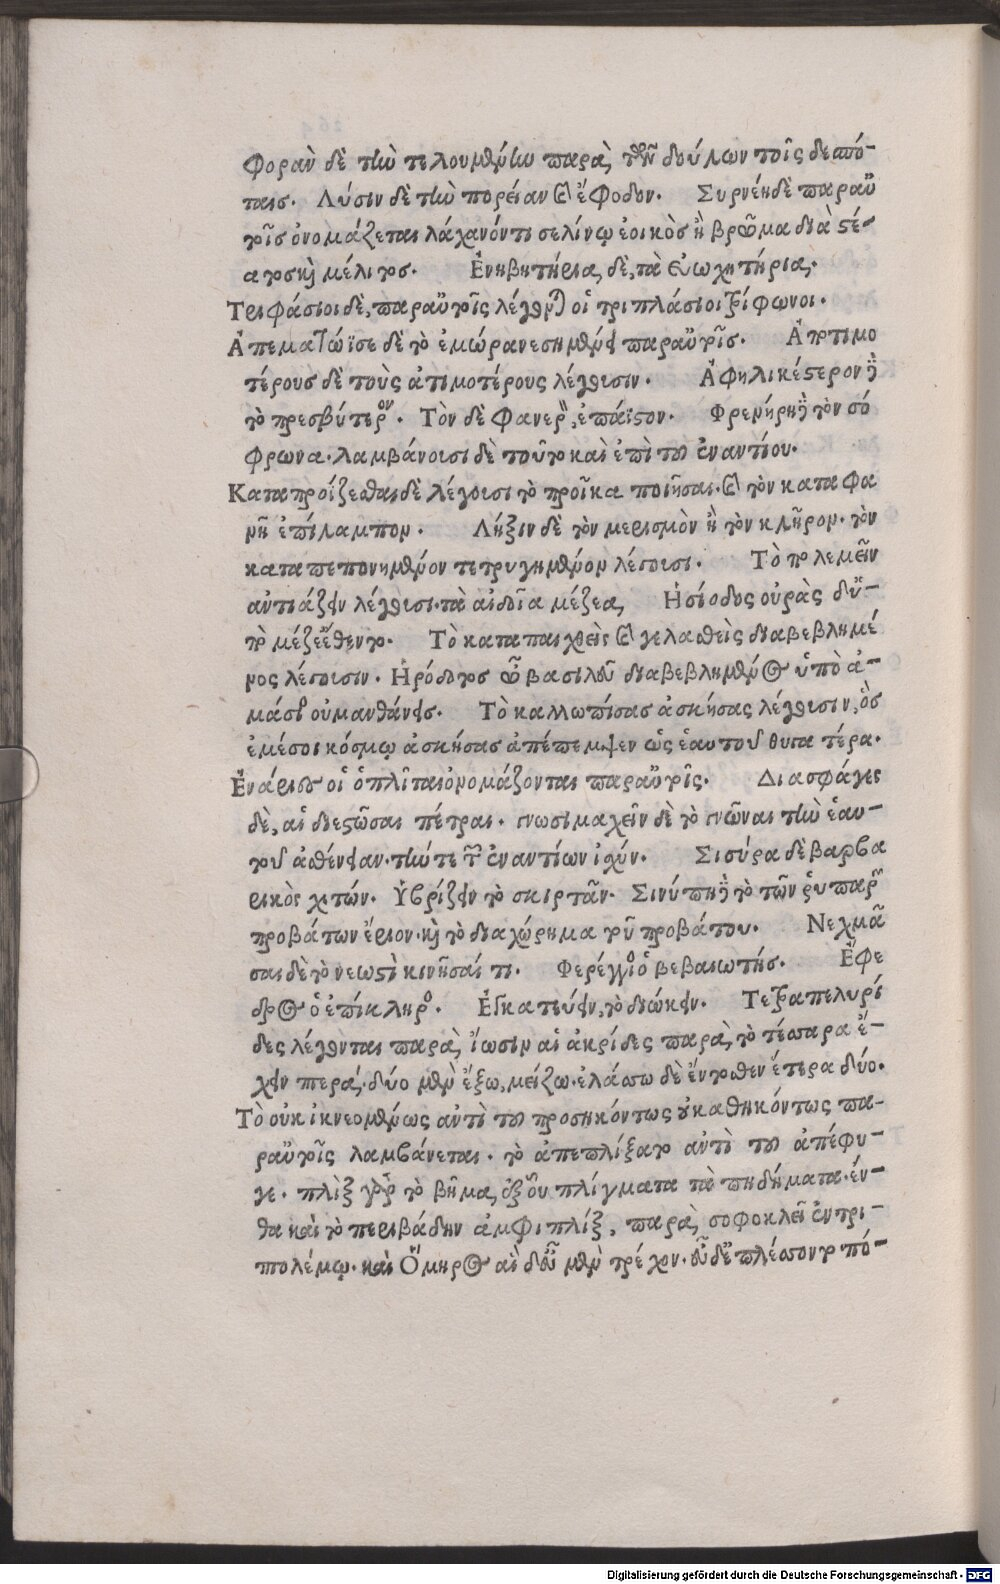 φορὰν δὲ τὴν τελουμένην παρὰ τῶν δούλων τοῖς δεσπό-
ταις. Λύσιν δὲ τὴν πορείαν καὶ ἔφοδον. Συρνέη δὲ παραυ
τοῖς ὀνομάζεται λάχανόν τι σελίνῳ ἐοικὸς ἢ βρῶμα διὰ στέ-
ατος καὶ μέλιτος. Ἐνηβητήρια δὲ, τὰ εὐωχητήρια.
Τριφάσιοι δὲ, παραυτοῖς λέγονται οἱ τριπλάσιοι τρίφωνοι.
Ἀπεματάϊσε δὲ τὸ ἐμώρανε σημαίνει παραυτοῖς. Ἀπτιμο
τέρους δὲ τοὺς ἀτιμοτέρους λέγουσιν. Ἀφηλικέστερον δὲ
τὸ πρεσβύτερον. Τὸν δὲ φανερὸν, ἐπάϊστον. Φρενήρη δὲ τὸν σό
φρωνα. λαμβάνουσι δὲ τοῦτο καὶ ἐπὶ τοῦ ἐναντίου.
Καταπροΐζεσθαι δὲ λέγουσι τὸ προῖκα ποιῆσαι. καὶ τὸν καταφα
νῆ ἐπίλαμπον. Λῆξιν δὲ τὸν μερισμὸν ἢ τὸν κλῆρον. τὸν
καταπεπονημένον τετρυγημένον λέγουσι. Τὸ πολεμεῖν
ἀντιάζειν λέγουσι. τὰ αἰδοῖα μέζεα, Ἡσίοδος οὐρὰς δὕ-
το μέζεἔθεντο. Τὸ καταπαιχθεὶς καὶ γελασθεὶς διαβεβλημέ
νος λέγουσιν. Ἡρόδοτος ὦ βασιλεῦ διαβεβλημένος ὑπὸ ἀ-
μάσι οὐ μανθάνεις. Τὸ καλλωπίσας ἀσκήσας λέγουσιν, ὃς
ἐμέσοι κόσμῳ ἀσκήσας ἀπέπεμψεν ὡς ἑαυτοῦ θυγατέρα.
Ἐνάριοι οἱ ὁπλῖται ὀνομάζονται παραυτοῖς. Διασφάγες
δὲ, αἱ διεστῶσαι πέτραι. γνωσιμαχεῖν δὲ τὸ γνῶναι τὴν ἑαυ-
τοῦ ἀσθένειαν. τήν τε τῶν ἐναντίων ἰσχύν. Σισύρα δὲ βαρβα
ρικὸς χιτών. Ὑβρίζειν τὸ σκιρτᾶν. Σινύπη δὲ τὸ τῶν ῥυπαρῶν
προβάτων ἔριον. καὶ τὸ διαχώρημα τοῦ προβάτου. Νεχμῶ
σαι δὲ τὸ νεωστὶ κινῆσαί τι. Φερέγγυος ὁ βεβαιωτής. Ἔφε
δρος ὁ ἐπίκληρος. Ἐγκατεύειν, τὸ διώκειν. Τετραπελυρί
δες λέγονται παρὰ ἴωσιν αἱ ἀκρίδες παρὰ τὸ τέσσαρα ἔ-
χειν πτερά. δύο μὲν ἔξω, μείζω. ἐλάσσω δὲ ἔντοθεν ἕτερα δύο.
Τὸ οὐκ ἱκνεομένως ἀντὶ τοῦ προσηκόντως οὐ καθηκόντως πα-
ραυτοῖς λαμβάνεται. τὸ ἀπεπλίξατο ἀντὶ τοῦ ἀπέφυ-
γε. πλὶξ γὰρ τὸ βῆμα, ἐξ οὗ πλίγματα τὰ πηδήματα. ἔν-
θα καὶ τὸ περιβάδην ἀμφιπλίξ, παρὰ σοφοκλεῖ ἐν τρι-
πολέμῳ. καὶ Ὅμηρος αἱ δ' εὖ μὲν τρέχον. εὖ δὲ πλέσσοντο πό-
Digitalisierung gefördert durch die Deutsche Forschungsgemeinschaft - DFG